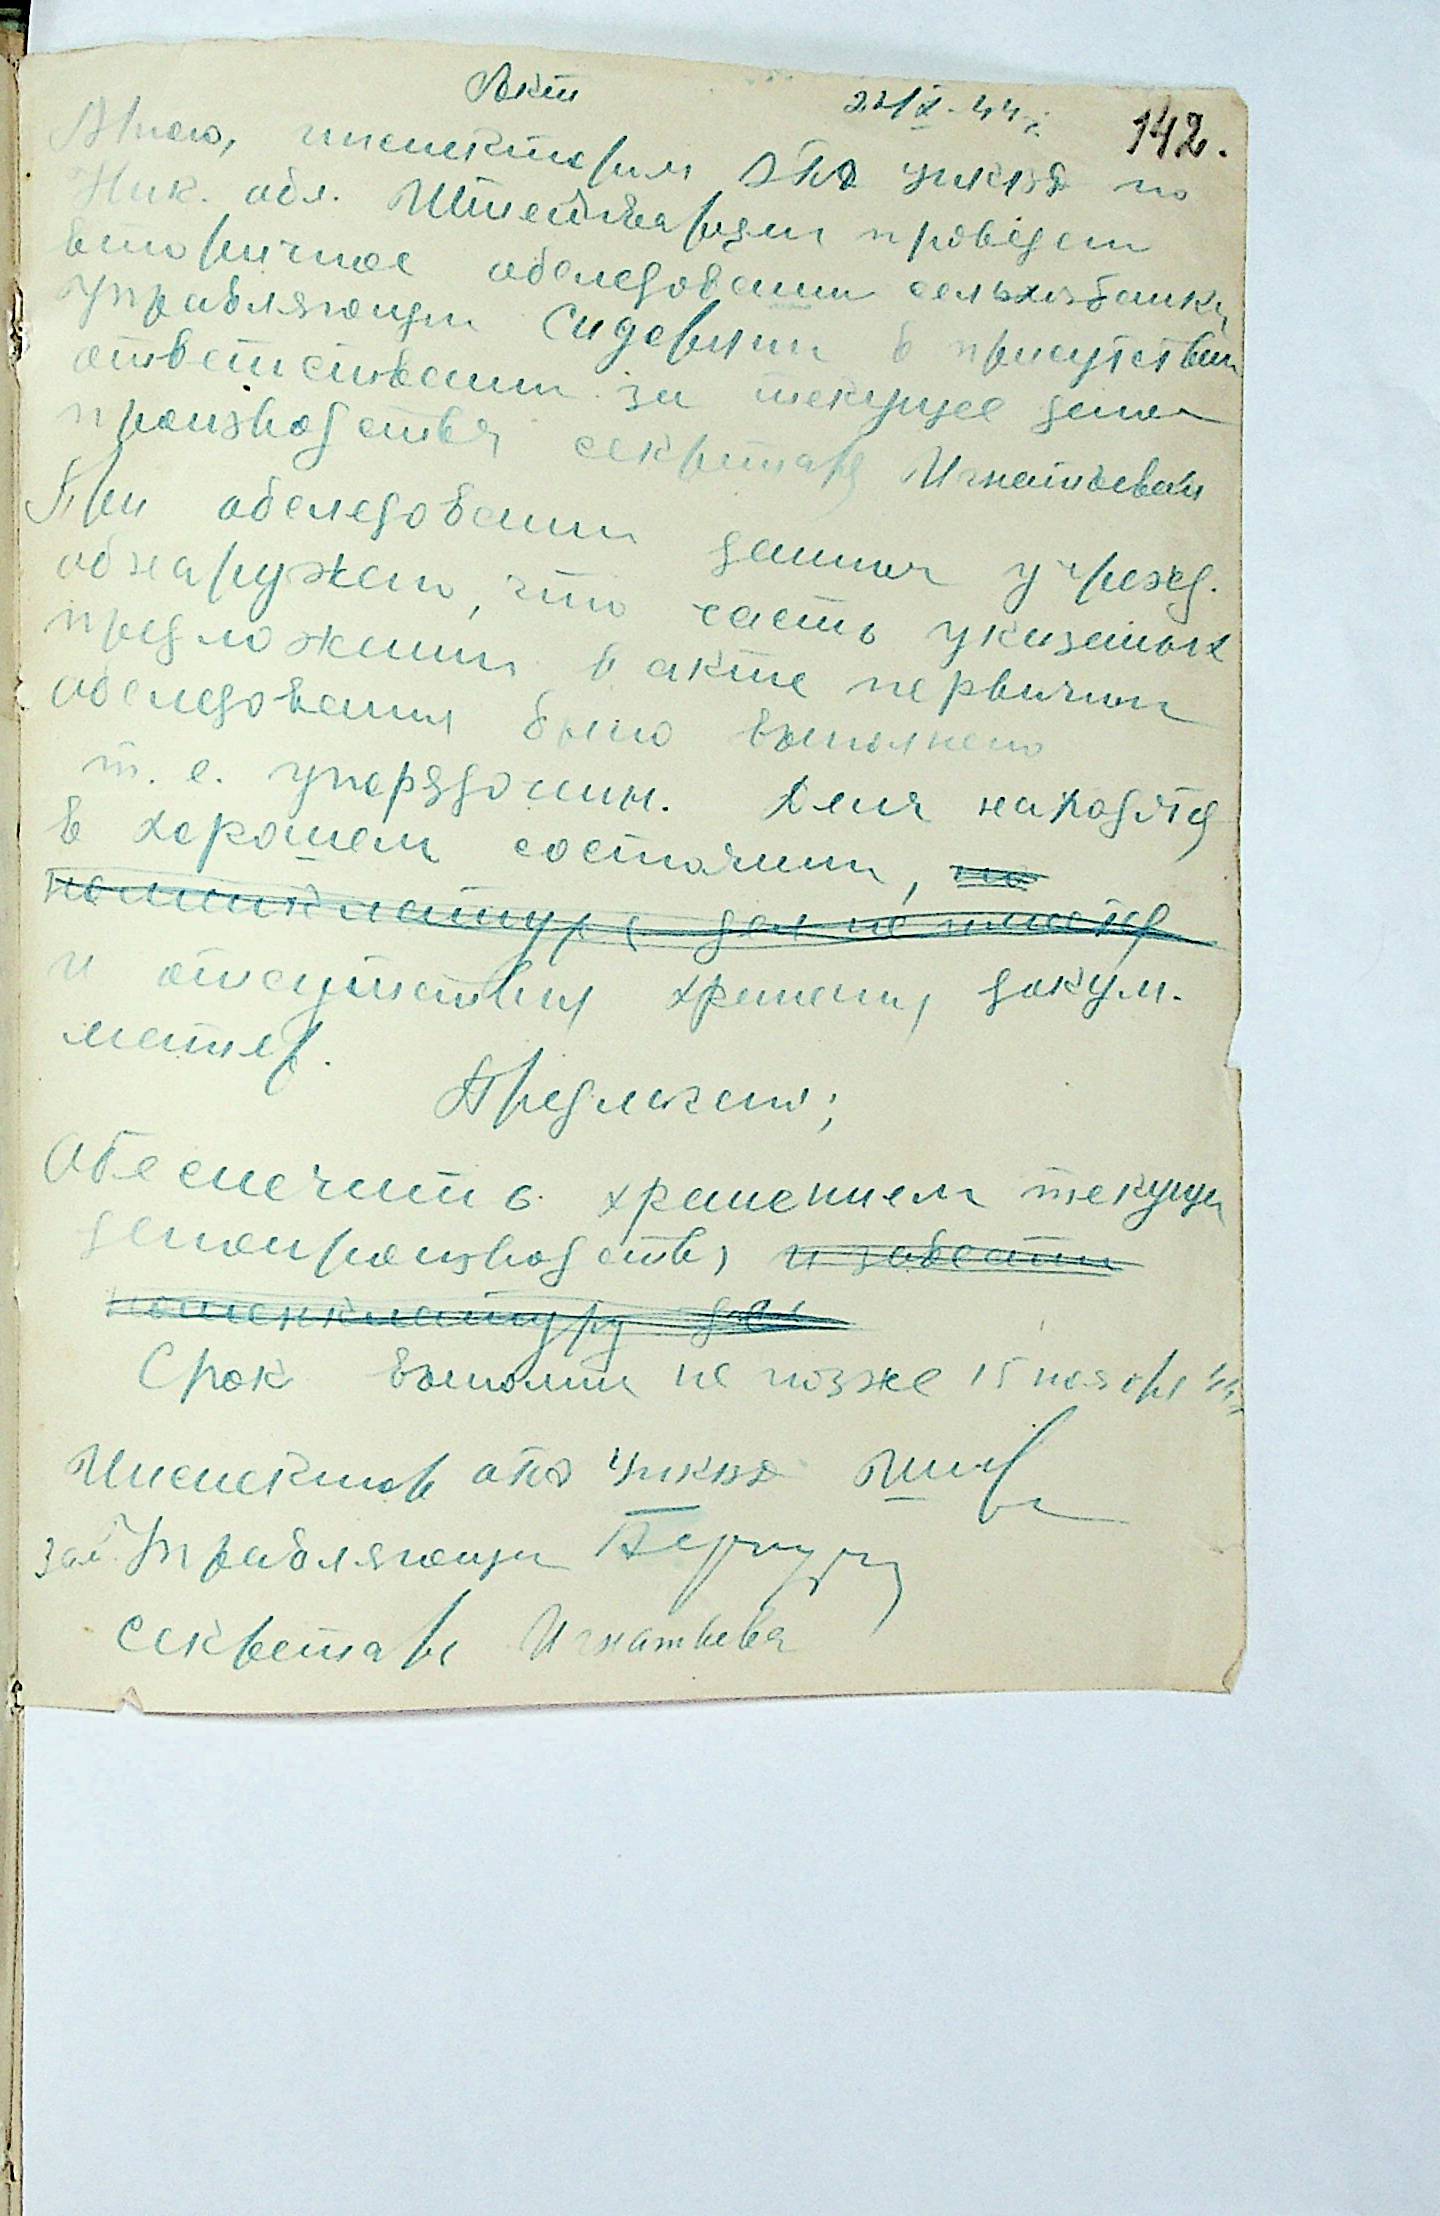 Акт 22/X-44 г. 142.
Мною, инспектором ОГА УНКВД по
Ник. обл. Штейнбарцем проведен
вторичное обследовании сельхозбанка,
Управляющим Сидориным в присутствии
ответствен за текущее дело
производства секретарь Игнатьевой
При обследовании данного учрежд.
обнаружено, что часть указанных
предложений в акте первичного
обследования было выполнено
т. е. упорядочен. Дела находятся
в хорошем состоянии, но
номенклатура дел не имеется
и отсутствия хранения докум.
матер.
Предлагаю;
Обеспечить хранением текущи
делопроизводства и завести
номенклатуру дел
Срок выполнен не позже 15 ноября 44 г
Инспектор ОГА УНКВД
зам. Управляющи
секретарь Игнатьева